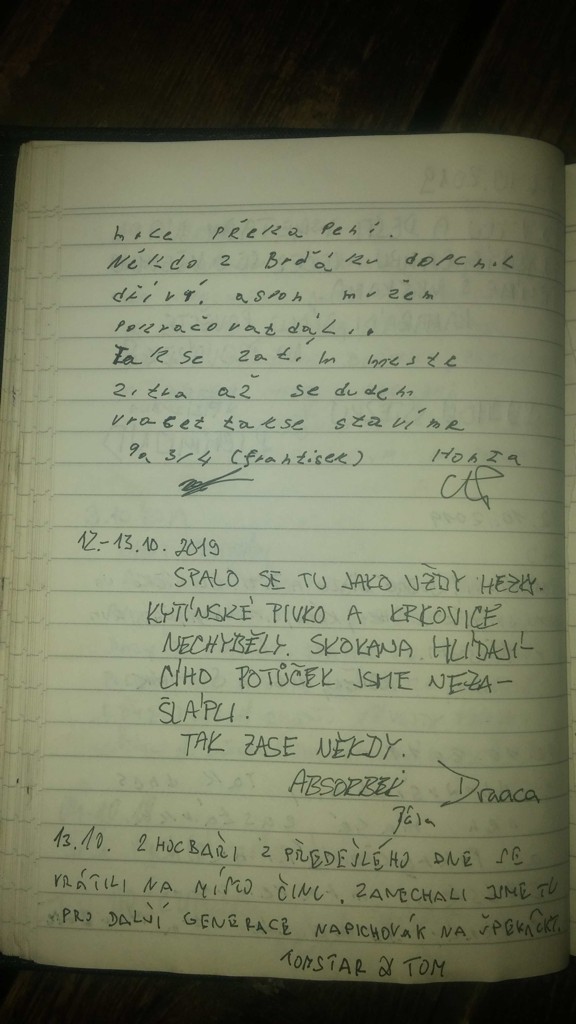 překa pení.
Někdo z Brďá ku dopcnil
dříví. aspon mužem
pokračovat dál..
Tak se zatím mejste
zitra až se dudem
vracet takse stavíme
9a 3/4 (František) Honza
12.-13.10. 2019
SPALO SE TU JAKO VŽDY HEZKY.
KYTÍNSKÉ PIVKO A KRKOVICE
NECHYBĚLY. SKOKANA HLÍDAJÍ-
CÍHO POTŮČEK JSME NEZA-
ŠLÁPLI.
TAK ZASE NĚKDY.
ABSORBEK Draaca
13.10. 2 HOCBAŘI Z PŘEDEJŠLÉHO DNE SE
VRÁTILI NA MÍSTO ČINU. ZANECHALI JSME TU
PRO DALŠÍ GENERACE NAPICHOVÁK NA ŠPEKÁČKY.
TOMSTAR & TOM